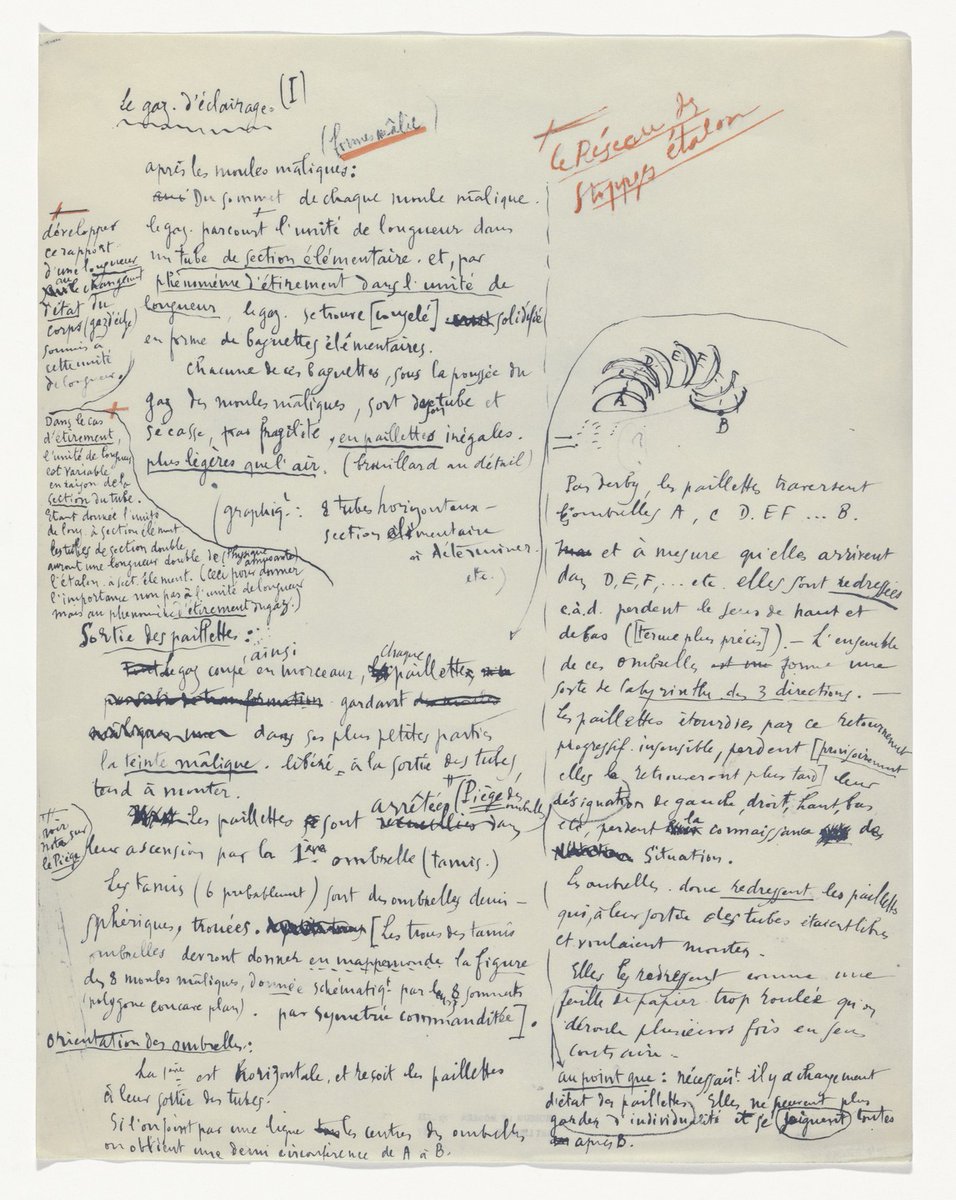 le gaz d'éclairage (I)
(formes mâlic)
après les moules mâliques:
Du sommet de chaque moule mâlique.
le gaz parcourt l'unité de longueur dans
un tube de section élémentaire. et, par
phénomème d'étirement dans l'unité de
longueur, le gaz se trouve [congelé] solidifié
en forme de baguettes élémentaires.
Chacune de ces baguettes, sous la poussée du
gaz des moules mâliques, sort de son tube et
se casse, par fragilité, en paillettes inégales.
plus légères que l'air. (brouillard au détail)
(graphiqt: 8 tubes horizontaux —
section élémentaire
à déterminer.
etc.)
+
développer
ce rapport
d'une longueur
au changement
d'état du
corps (gaz d'écl.)
soumis à
cette unité
de longueur.
+
Dans le cas
d'étirement,
l'unité de longueur
est variable
en raison de la
section du tube.
Etant donnée l'unité
de long. à section élément
les tubes de section double
auront une longueur double de (Physique amusante)
l'étalon à sect. élément. (Ceci pour donner
l'importance non pas à l'unité de longueur
mais au phénomène d'étirement du gaz.)
Sortie des paillettes:
le gaz coupé, ainsi en morceaux, chaque paillette
gardant
dans ses plus petites parties
la teinte mâlique. libéré à la sortie des tubes,
tend à monter.
Les paillettes sont arrêtées (Piège des ombrelles) dans
leur ascension par la 1ère ombrelle (tamis.)
voir
note sur
le Piège
Les tamis (6 probablement) sont des ombrelles demi-
sphériques, trouées. [Les trous des tamis
ombrelles devront donner en mappemonde la figure
des 8 moules mâliques, donnée schématiqt par les 8 sommets
(polygone concave plan). par symétrie commanditée].
Orientation des ombrelles:
La 1ère est horizontale, et reçoit les paillettes
à leur sortie des tubes.
Si l'on joint par une ligne les centres des ombrelles
on obtient une demi circonférence de A à B.
+
le Réseau des
stoppages étalon
A
D
E
F
B
Par derby, les paillettes traversent
ombrelles A, C D. E F ... B.
et à mesure qu'elles arrivent
dans D, E, F, ... etc. elles sont redressées
c.à.d. perdent le sens de haut et
de bas ([terme plus précis]). — L'ensemble
de ces ombrelles forme une
sorte de labyrinthe des 3 directions. —
Les paillettes étourdies par ce retournement
progressif insensible, perdent [provisoirement
elles le retrouveront plus tard] leur
désignation de gauche, droit, haut, bas
etc, perdent la connaissance de
situation.
Les ombrelles. donc redressent les paillettes
qui, à leur sortie des tubes étaient libres
et voulaient monter.
Elles les redressent comme une
feuille de papier trop roulée qu'on
déroule plusieurs fois en sens
contraire —
au point que: nécessairt. il y a changement
d'état des paillettes. Elles ne peuvent plus
garder d'individualité et se joignent toutes
après B.